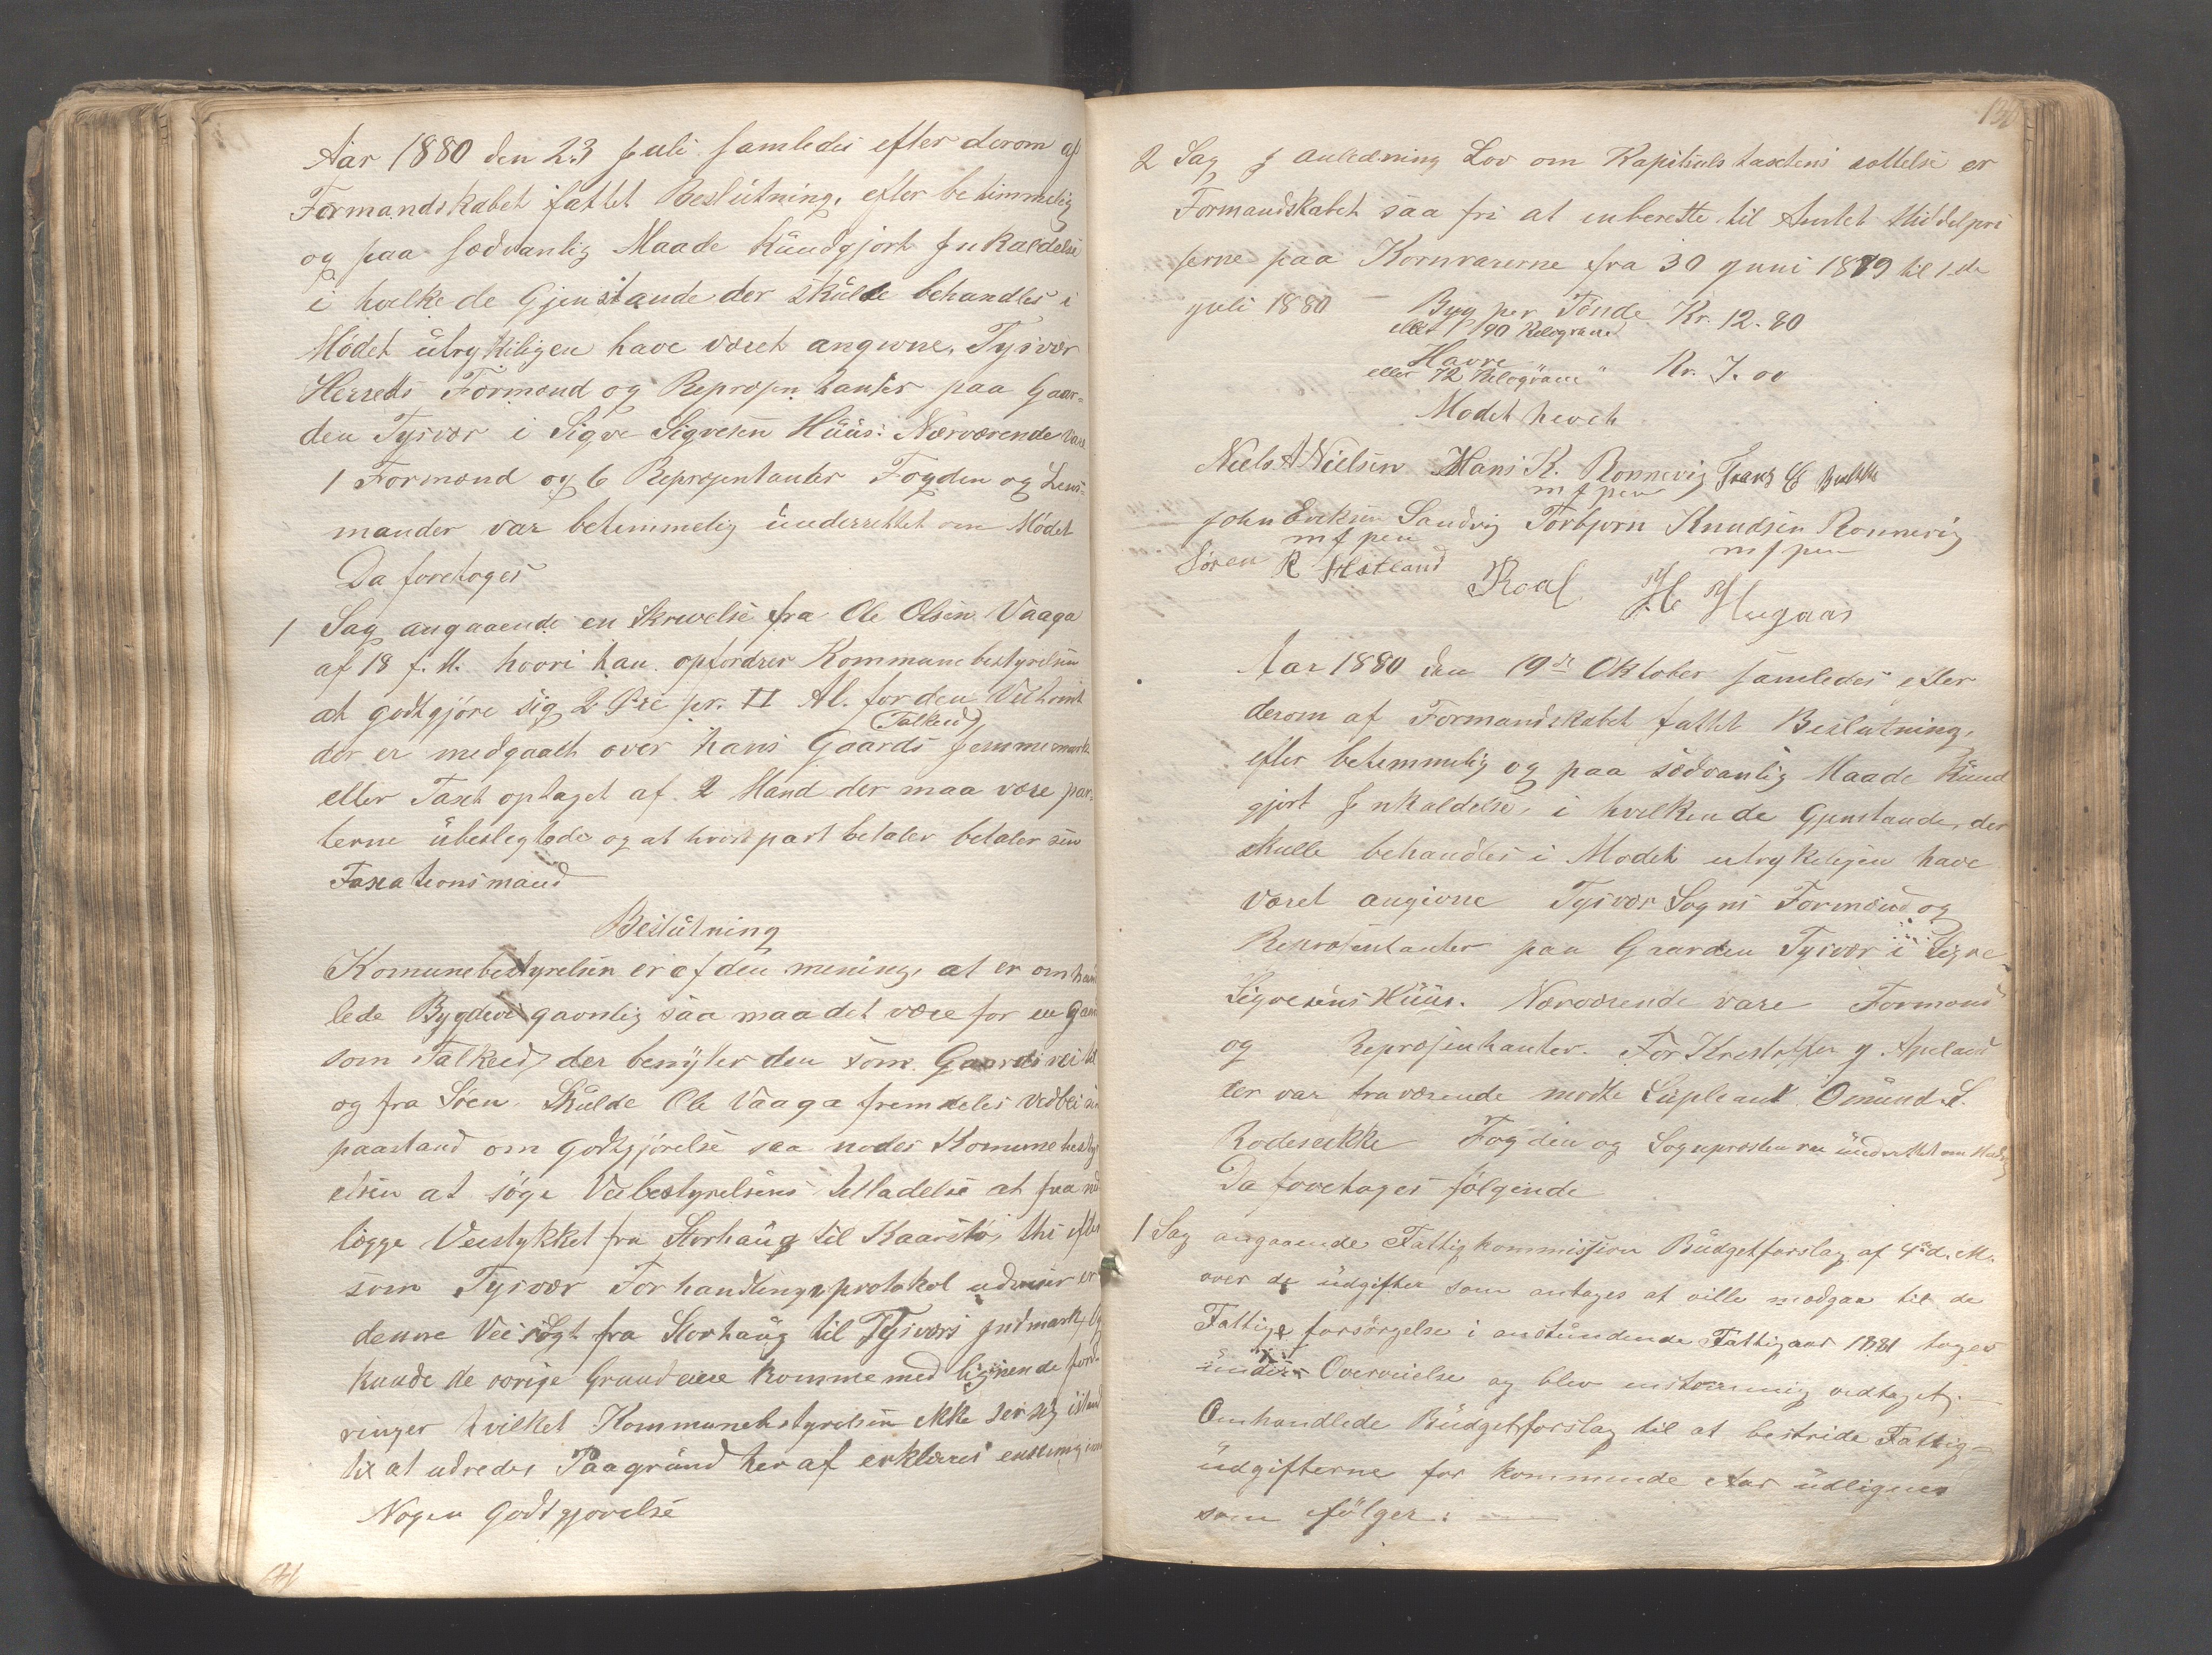 Aar 1880 den 23 Juli samledes efter derom af
Formandskabet fattet Beslutning, efter betimmelig
og paa sædvanlig Maade kundgjort Inkaldelse
i hvilke de Gjenstande der skulde behandles i
Mödet utrykkiligen have været angivne, Tysvær
Herreds Formænd og Repræsentanter paa Gaar-
den Tysvær i Sigve Sigvesen Huus: Nærværende vare
1 Formænd og 6 Repræsentanter Fogden og Lens-
mander var betimmelig underrettet om Mödet
Da foretoges
1 Sag angaaende en Skrivelse fra Ole Olsen Vaaga
af 18 f. M. hvori han opfordrer Kommunebestyrelsen
at godtgjöre sig 2 Öre pr. II Al. for den Veitomt
(Falkeid)
der er medgaaet over hans Gaards Jemmemark
eller Taxt optaget af 2 Mand der maa være par-
terne ubeslegtede og at hvert part betaler betaler sin
Taxationsmand
Beslutning
Komunebestyrelsen er af den mening, at er omhand
lede Bygdevei gavnlig saa maa det være for en Gaard
som Falkeid der benyter den som Gaards vei til
og fra Söen. Skulde Ole Vaaga fremdeles vedblei sin
paastand om godtgjörelse saa nödes Komunebesty
elsen at söge Veibestyrelsens Tilladelse at faa ned
lægge Veistykket fra Storhaug til Kaarstö, thi efter
som Tysvær Forhandlingsprotokol udviser er
denne Vei sögt fra Storhaug til Tysværs Indmark, og
kunde de övrige Grundeiere komme med lignende ford-
ringer hvilket Kommunebestyrelsen ikke ser sig istand
til at udredes Paagrund heraf erklæres enstemig
Nogen Godtgjörelse
2 Sag J anledning Lov om Kapitalstaxtens sættelse er
Formandskabet saa fri at inberette til Amtet Middelpri
serne paa Kornvarerne fra 30 Juni 1879 til 1ste
juli 1880 — Byg per Tönde Kr. 12.80
eller 90 Kilogram
Havre " Kr. 7.00
eller 72 Kilogram
Modet hævet
Niels A Nielsen Hans K. Rönnevig
m f pen
John Eriksen Sandvig Torbjorn Knudsen Rönnevig
m f pen m f pen
Sören R Hetland Roal H H Hegaas
Aar 1880 den 19de Oktober samledes efter
derom af Formandskabet fattet Beslutning,
efter betimmelig og paa sædvanlig Maade Kund
gjort Inkaldelse, i hvilken de Gjenstande, der
skulle behandles i Modet utrykeligen have
været angivne Tysvær Sogns Formænd og
Repræsentanter paa Gaarden Tysvær i Sigve
Sigvesens Huus. Nærværende vare Formænd
og Repræsentanter. For Kristoffer J Apeland
der var fraværende mödte Supleant Omund S.
Rodeseikke Fogden og Sognepræsten var underrettet om Mödet
Da foretoges fölgende
1 Sag angaaende Fattigkommission Budgetforslag af 4de d. M.
over de udgifter som antages at ville medgaa til de
Fattige forsörgelse i anstundende Fattigaar 1881 toges
under Overveielse og blev enstemmig vedtaget. —
Omhandlede Budgetforslag til at bestride Fattig-
udgifterne for kommende Aar udlignes
som fölger: